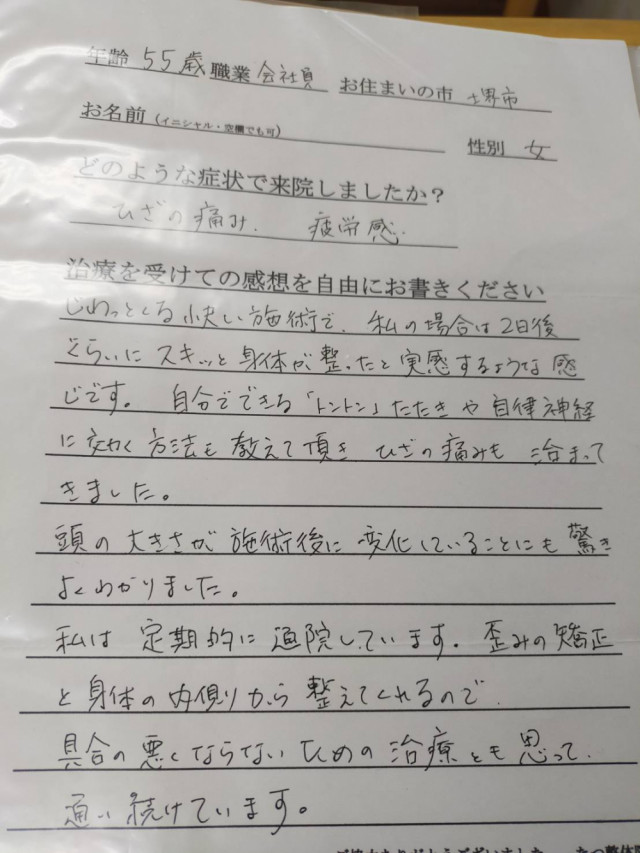 年齢 55歳 職業 会社員 お住まいの市 堺市
お名前(イニシャル・空欄でも可) 性別 女
どのような症状で来院しましたか?
ひざの痛み. 疲労感.
治療を受けての感想を自由にお書きください
じわっとくる快い施術で、私の場合は2日後
ぐらいにスキッと身体が整ったと実感するような感
じです。 自分でできる「トントン」たたきや自律神経
に効く方法も教えて頂き ひざの痛みも治まって
きました。
頭の大きさが施術後に変化していることにも驚き
よくわかりました。
私は定期的に通院しています。歪みの矯正
と身体の内側から整えてくれるので、
具合の悪くならないための治療とも思って、
通い続けています。
ご協力ありがとうございました